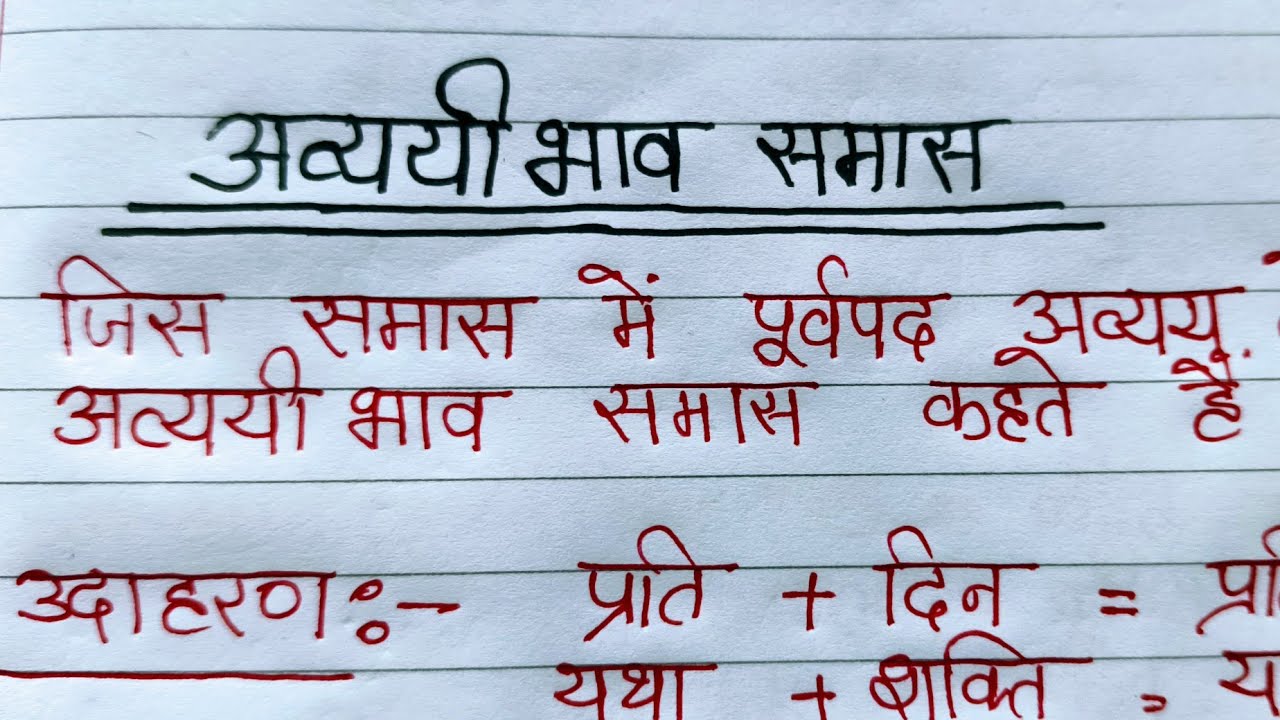 अव्ययीभाव समास
जिस समास में पूर्वपद अव्यय
अव्ययीभाव समास कहते है
उदाहरण :- प्रति + दिन =
यथा + शक्ति =